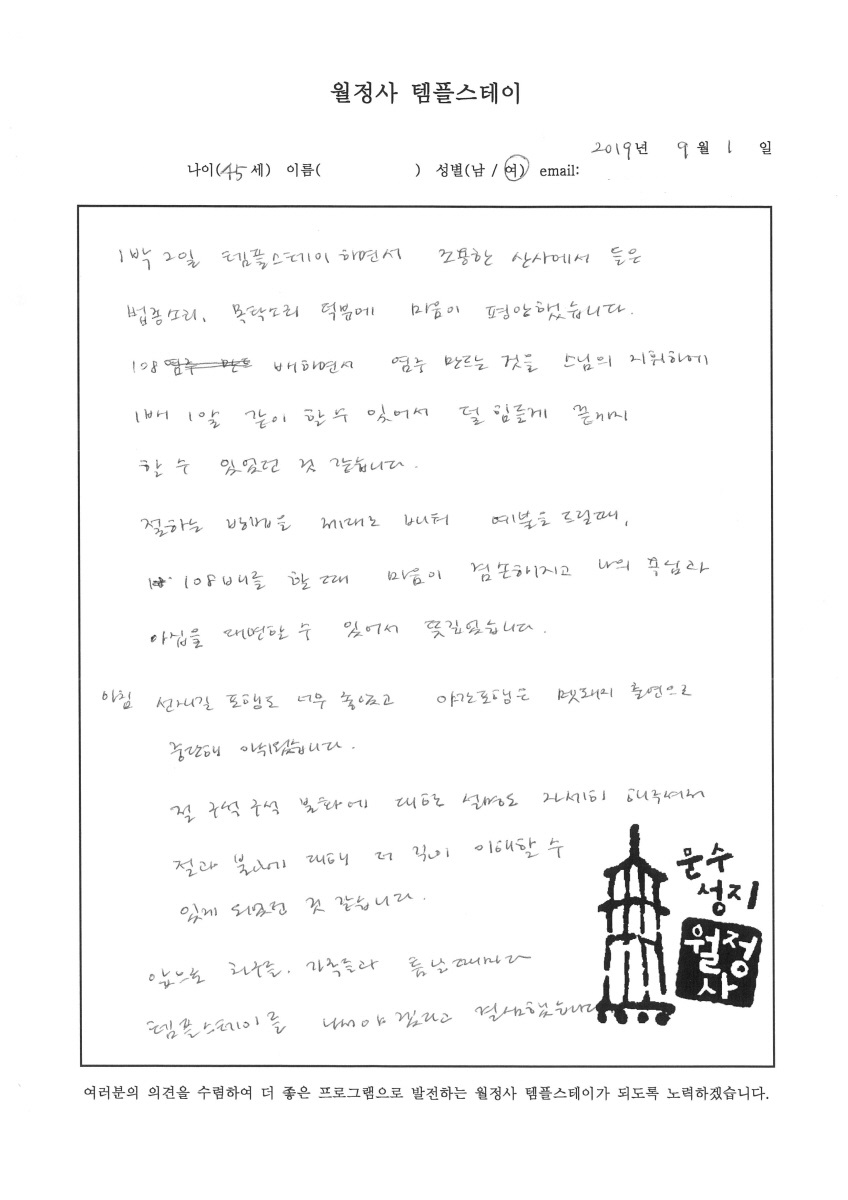 월정사 템플스테이
2019년 9월 1일
나이(45세) 이름( ) 성별(남 / 여) email:
1박 2일 템플스테이 하면서 조용한 산사에서 들은
법종소리, 목탁소리 덕분에 마음이 평안했습니다.
108 배하면서 염주 만드는 것을 스님의 지휘하에
1배 1알 같이 할 수 있어서 덜 힘들게 끝까지
할 수 있었던 것 같습니다.
절하는 방법을 제대로 배워 예불을 드릴때,
108배를 할 때 마음이 겸손해지고 나의 욕심과
아집을 대면할 수 있어서 뜻깊었습니다.
아침 선재길 포행도 너무 좋았고 야간포행은 멧돼지 출연으로
중단해 아쉬웠습니다.
절 구석구석 불화에 대한 설명도 자세히 해주셔서
절과 불교에 대해 더 깊이 이해할 수
있게 되었던 것 같습니다.
앞으로 친구들, 가족들과 틈날때마다
템플스테이를 다녀야 겠다고 결심했습니다
문수
성지
월정
사
여러분의 의견을 수렴하여 더 좋은 프로그램으로 발전하는 월정사 템플스테이가 되도록 노력하겠습니다.